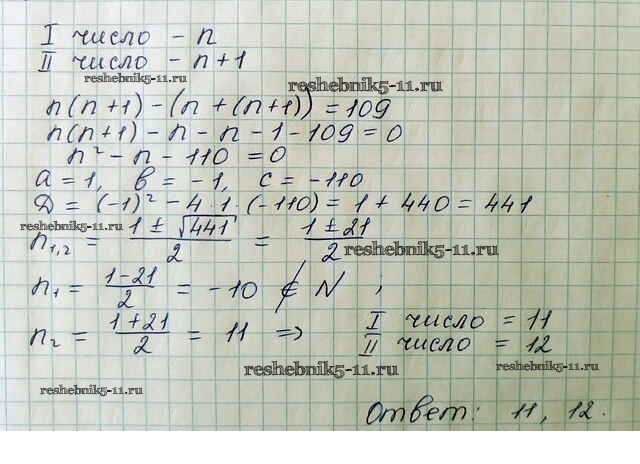 I число - n
II число - n+1
reshebnik5-11.ru reshebnik5-11.ru
n(n+1) - (n + (n+1)) = 109
n(n+1) - n - n - 1 - 109 = 0
n² - n - 110 = 0
a = 1, b = -1, c = -110
D = (-1)² - 4·1·(-110) = 1 + 440 = 441
reshebnik5-11.ru
n₁,₂ = (1 ± √441)/2 = (1 ± 21)/2
reshebnik5-11.ru
n₁ = (1-21)/2 = -10 ∉ N ;
n₂ = (1+21)/2 = 11 => I число = 11
II число = 12
reshebnik5-11.ru
reshebnik5-11.ru
Ответ: 11, 12.